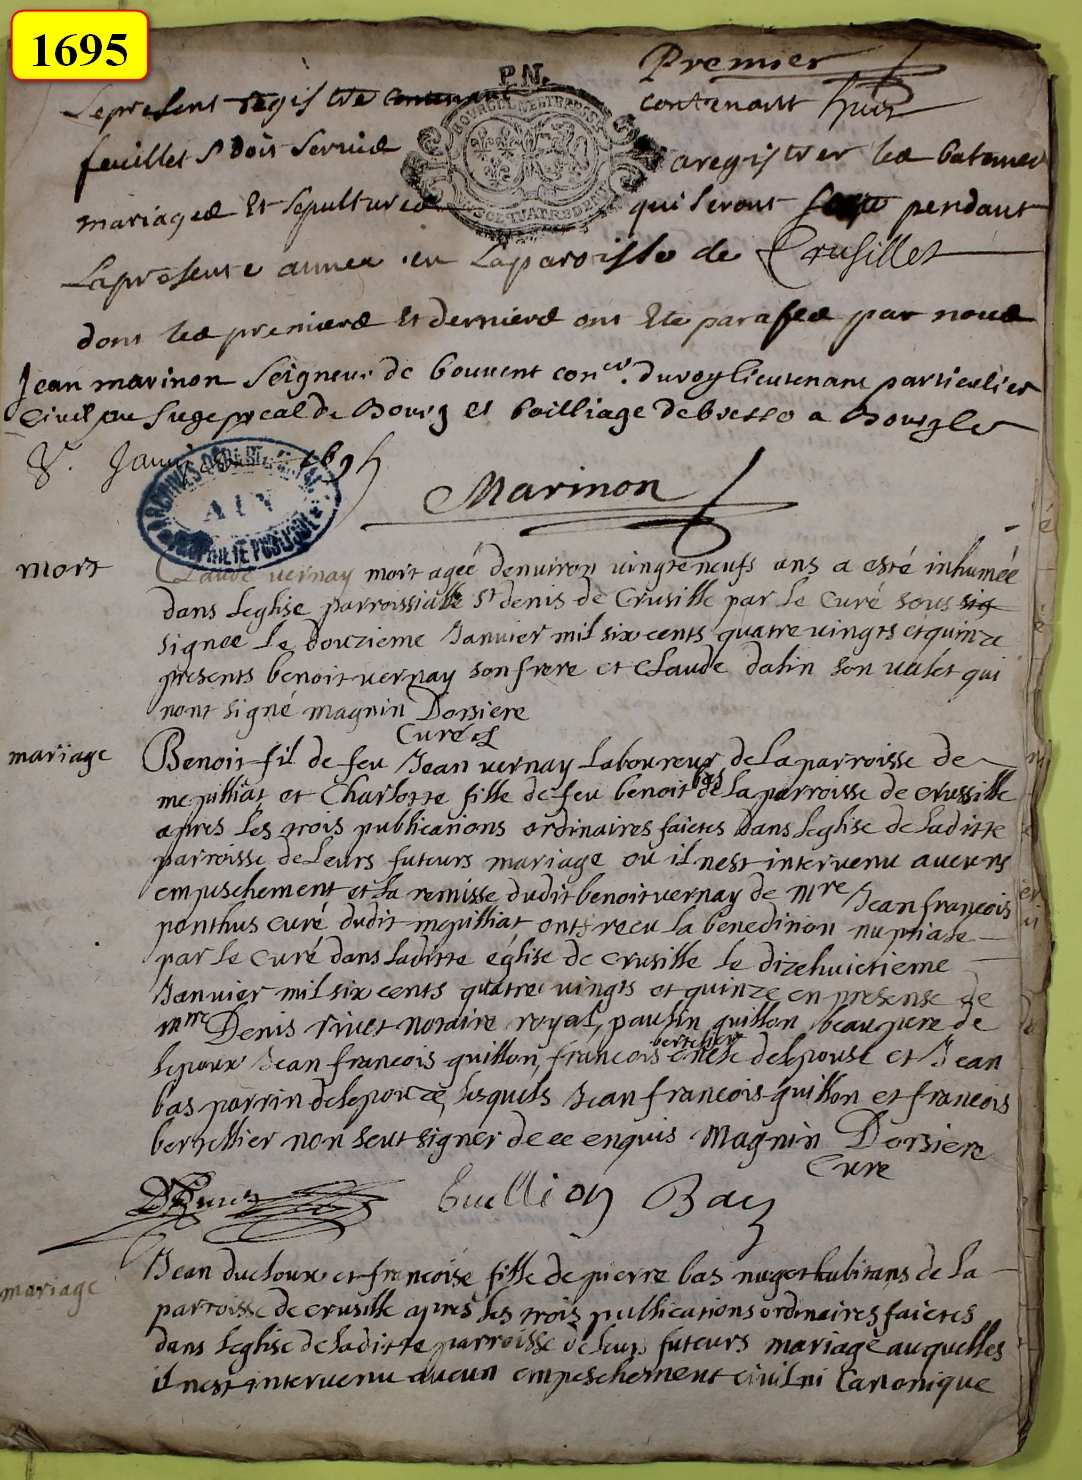 1695
P.N.
Premier
Le present registre contenant contenant huit
feuillet s doit servir a aregistrer les batemes
mariages Et sepultures qui seront pendant
La presente annee en La paroisse de Crusillet
dont les premiere et derniere ont Ete parafee par nous
Jean marinon Seigneur de bouvent con.er du roy lieutenant particulier
Civil au siege de Bourg et bailliage de bresse a Bourg le
8. Janvier 1695
Marinon
ARCHIVES DEPARTEMENTALES
AIN
PROPRIETE PUBLIQUE
mort
Claude vernay mort agéé denviron vingteneufs ans a esté inhumée
dans leglise parroissialle St denis de Crusille par le Curé sous sig
signee Le douzieme Janvier mil six cents quatre vingts et quinze
presents benoit vernay son frere et Claude dalin son valet qui
nont signé magnin Dorsiere
Curé
mariage
Benoit fil de feu Jean vernay Laboureur de La parroisse de
mepilliat et Charlotte fille de feu benoit bas de La parroisse de crussille
apres les trois publications ordinaires faictes dans leglise de laditte
parroisse de Leurs futeurs mariage ou il nest intervenu aucuns
empuschement et La remisse dudit benoit vernay de Mre Jean francois
ponthus curé dudit mepilliat ont recu la benediction nuptiale
par Le curé dans laditte église de crusille le dizehuictieme
Janvier mil six cents quatre vingts et quinze en presense de
mre Denis rivet notaire royal, paulin guillon beaupere de
lepoux Jean francois guillon, francois bertellier oncle delepouse et Jean
bas parrin delepouze, lesquels Jean francois guillon et francois
bertellier non sceut signer de ce enquis. Magnin Dorsiere
Cure
DRivet guillion Bas
mariage
Jean ducloux et francoise fille de pierre bas nuget habitans de La
parroisse de crusille apres les trois publications ordinaires faictes
dans leglise de laditte parroisse de leurs futeurs mariage auquelles
il nest intervenu aucun empeschement civil ni Canonique